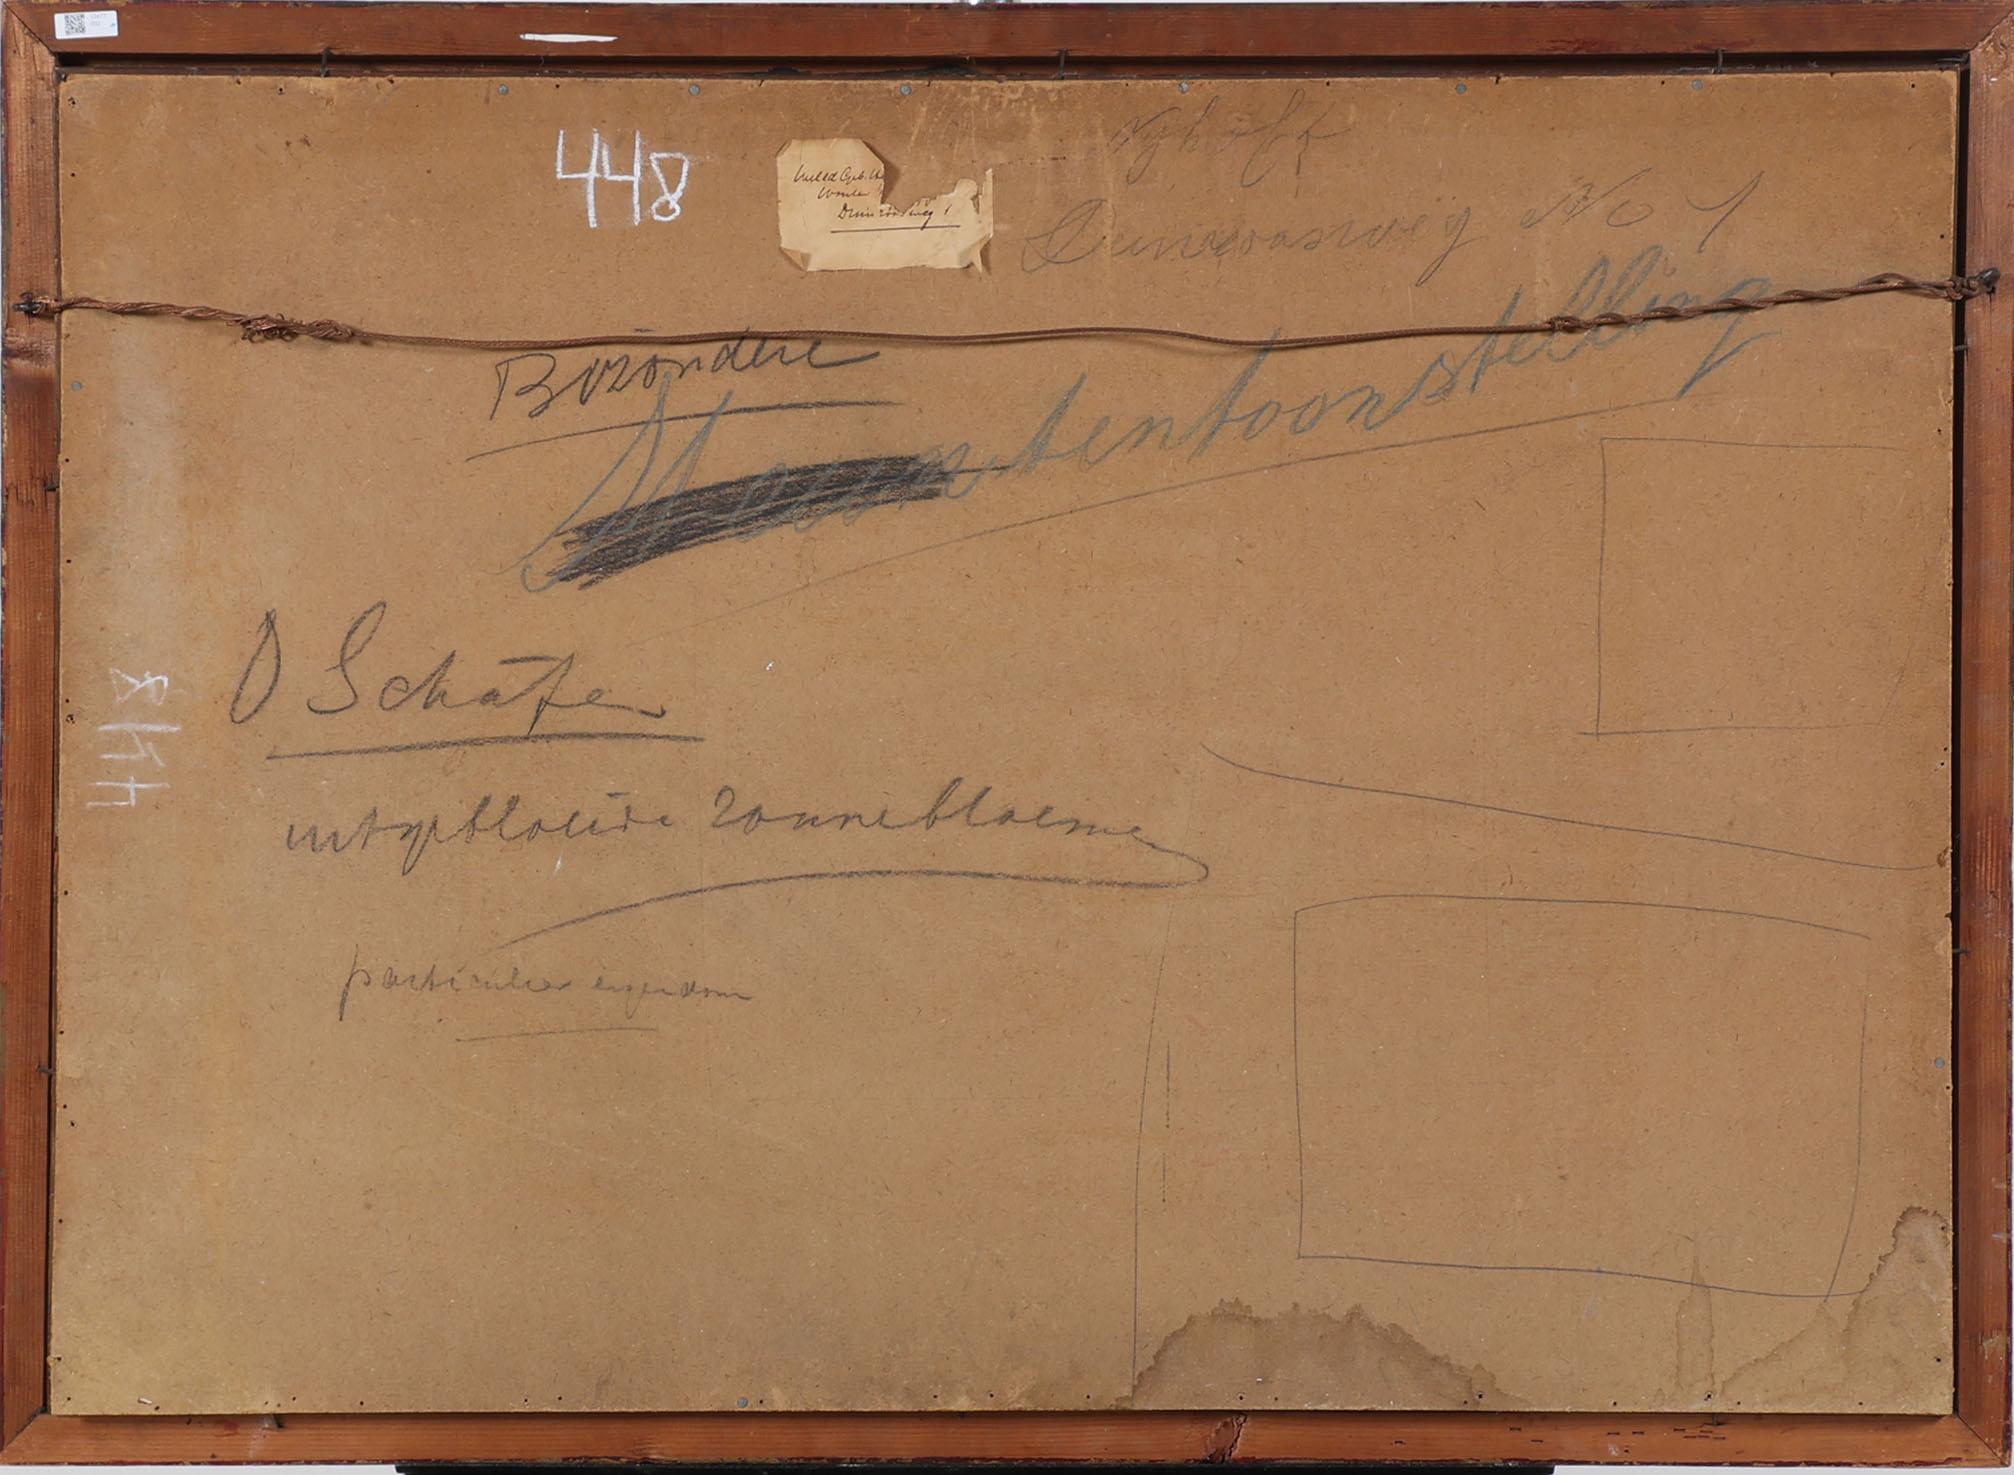 448
Nyhoff
Duinroosweg No 1
Duinroosweg 1
Bizondere
tentoonstelling
D Schäfer
uitgebloeide zonnebloemen
particulier eigendom
448